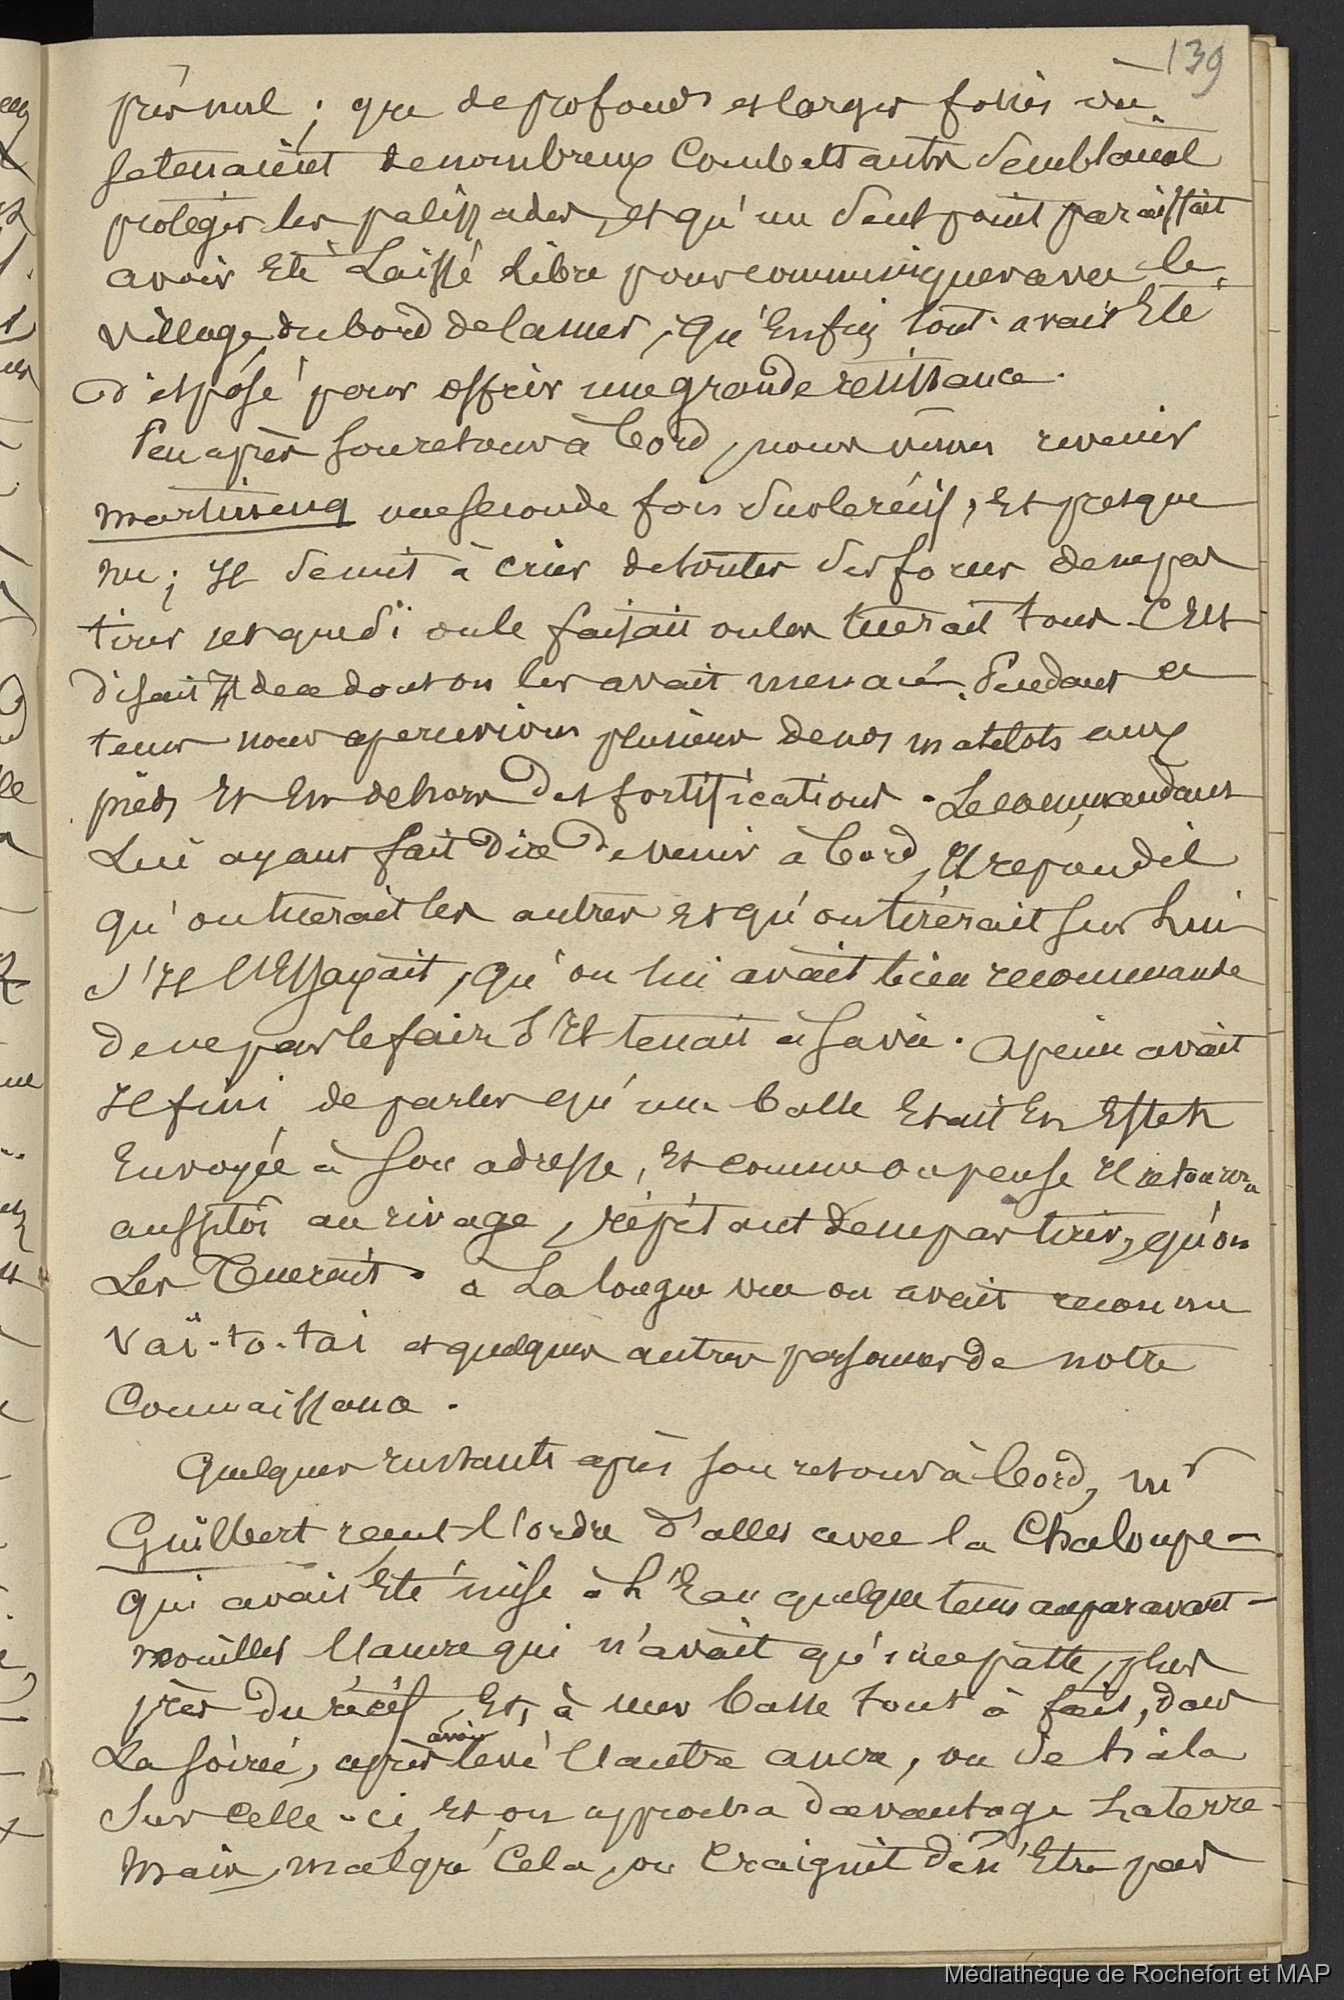 139
près nul ; que de profonds et larges fossés où
se tenaient de nombreux Combattants semblaient
protéger les palissades, et qu'un seul point paraissait
avoir Eté Laissé Libre pour communiquer avec le
village du bord de la mer, Qu'Enfin tout avait Eté
disposé pour offrir une grande résistance.
Peu après son retour à bord, nous vîmes revenir
Martineng une seconde fois sur le récif, Et presque
nu ; Il se mit à crier de toutes ses forces de ne pas
tirer et que si on le faisait on les tuerait tous. C'Est
disait Il de ce dont on les avait menacé. Pendant ce
tems nous apercevions plusieurs de nos matelots aux
pieds Et En dehors des fortifications. Le commandant
Lui ayant fait Dire De venir à bord, Il répondit
qu'on tuerait les autres et qu'on tirerait sur Lui
s'Il l'Essayait, Qu'on lui avait bien recommandé
de ne pas le faire s'Il tenait à sa vie. A peine avait
Il fini de parler qu'une balle Etait En Effet
Envoyée à son adresse, Et comme on pense Il retourna
aussitôt au rivage, répétant de ne pas tirer, qu'on
Les Tuerait. à La longue vue on avait reconnu
Vaï-to-tai et quelques autres personnes de notre
Connaissance.
Quelques Instants après son retour à bord, Mr
Guilbert reçut l'ordre d'aller avec la Chaloupe
qui avait Eté mise à L'Eau quelque tems auparavant
mouiller l'ancre qui n'avait qu'une patte, plus
près du récif, Et, à mer basse tout à fait, dans
La soirée, après avoir levé l'autre ancre, on se hâla
Sur celle-ci, Et on approcha davantage La terre
Mais, malgré Cela, on Craignit de n'Etre pas
Médiathèque de Rochefort et MAP